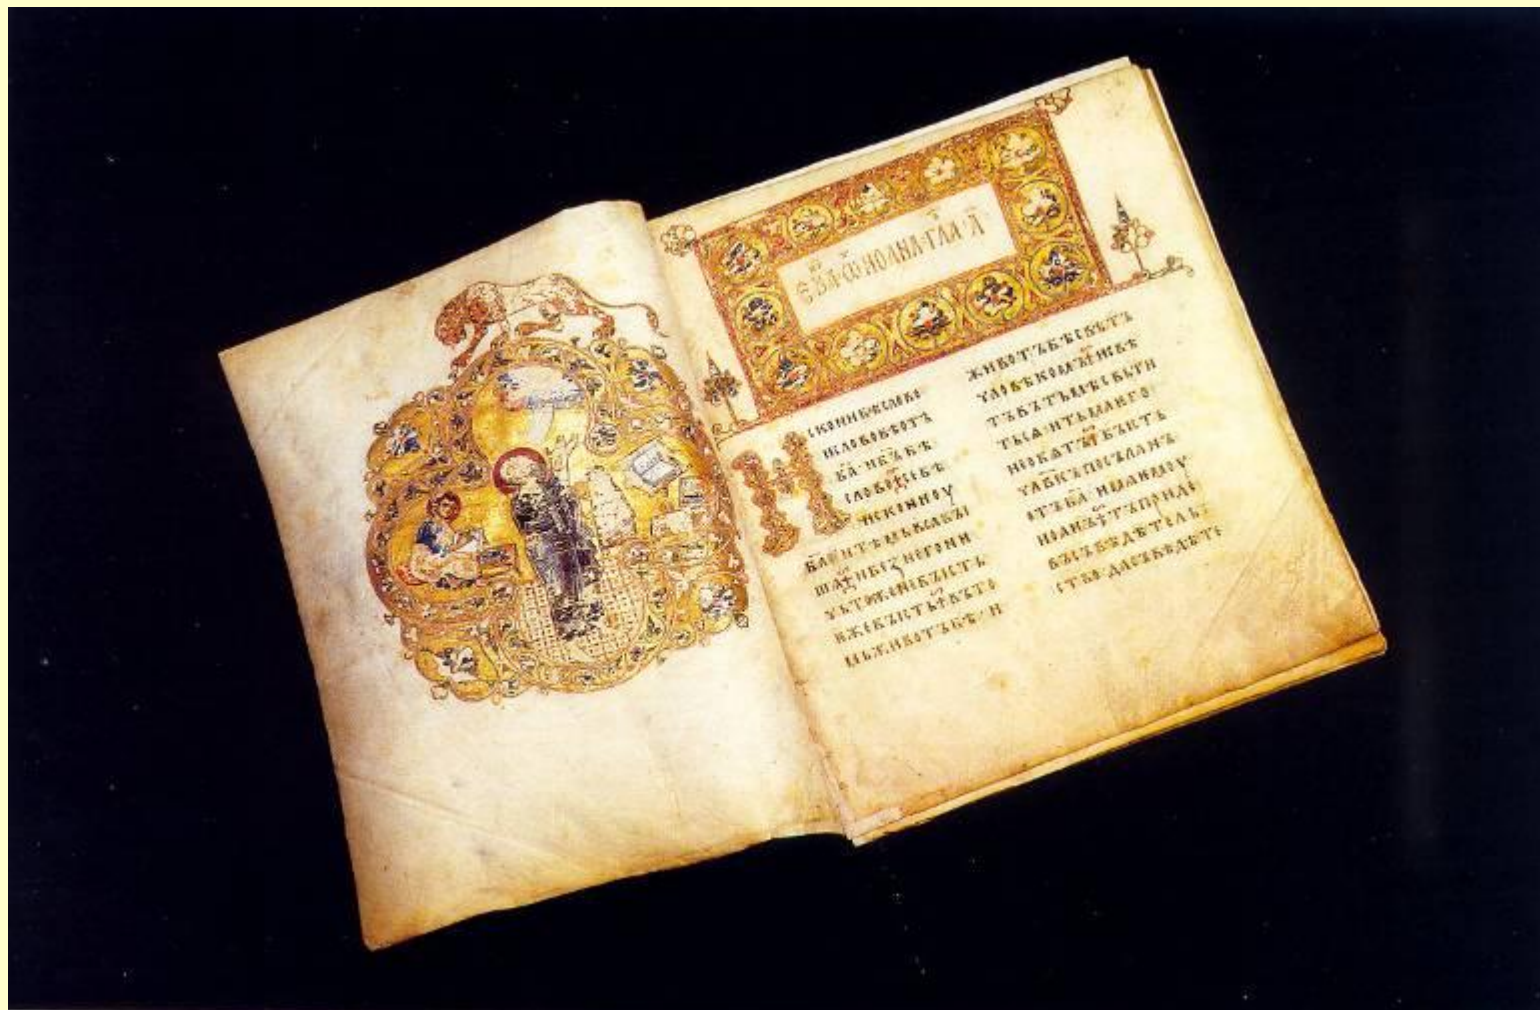 ЕВ҃А·Ѿ ИОАНА·ГЛА·А҃
ИСКОНИБѢСЛОВО
ИСЛОВОБѢОТЪ
Б҃А·ИБ҃ЪБѢ
СЛОВО·СЕБѢ
ИСКОНИОУ
Б҃А·ИТѢМЬВЬСꙖБꙐ
ШѦ·ИБЕЖНЕГОНИ
ЧЬТОЖЕНЕБꙐСТЬ
ѤЖЕБꙐСТЬ·ВЪТО
МЬЖИВОТЪБѢ·И
ЖИВОТЪБѢСВѢТЪ
ЧЛОВѢКОМЪ·ИСВѢ
ТЪВЪТЬМѢСВЬТИ
ТЬСѦ·ИТЬМАѤГО
НЕОБѦТЪ·БꙐСТЬ
ЧЛ҃ВКЪПОСЪЛАНЪ
ОТЪБ҃А·ИМѦѤМОУ
ИОАНЪ·ТЪПРИДЕ
ВЪСЪВѢДѢТЕЛЬ
СТВО·ДАСЪВѢДѢТЕ